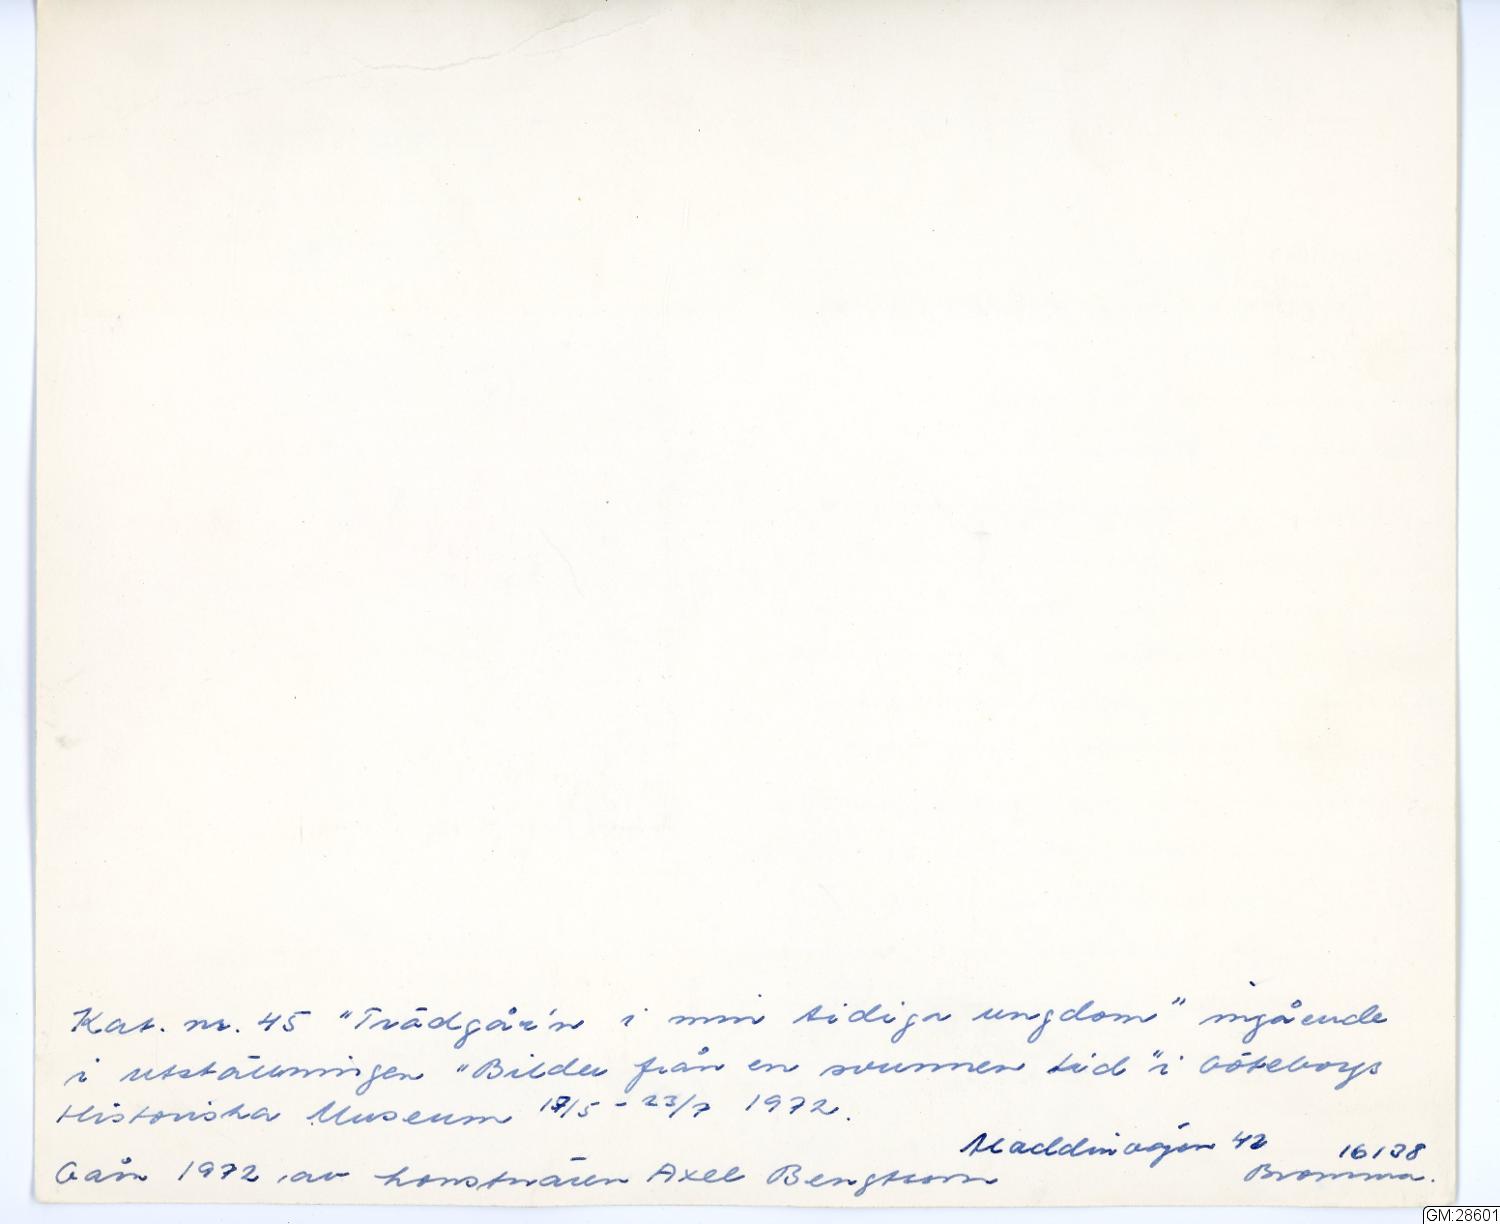 Kat. nr. 45 "Trädgår'n i min tidiga ungdom" ingående
i utställningen "Bilder från en svunnen tid" i Göteborgs
Historiska Museum 17/5 - 23/7 1972.
Aladdinvägen 42 16138
Gåva 1972 av konstnären Axel Bengtsson Bromma.
GM:28601